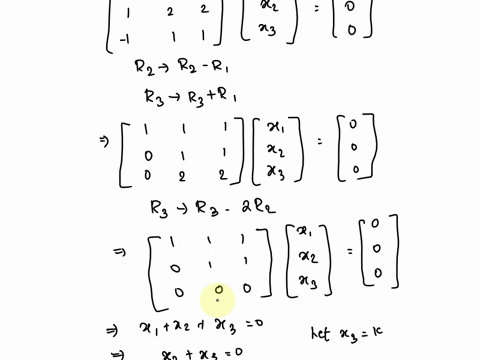 1 2 2 x2 = 0
-1 1 1 x3 0
R2 → R2 - R1
R3 → R3 + R1
⇒ [1 1 1; 0 1 1; 0 2 2] [x1; x2; x3] = [0; 0; 0]
R3 → R3 - 2R2
⇒ [1 1 1; 0 1 1; 0 0 0] [x1; x2; x3] = [0; 0; 0]
⇒ x1 + x2 + x3 = 0 let x3 = k
⇒ x2 + x3 = 0